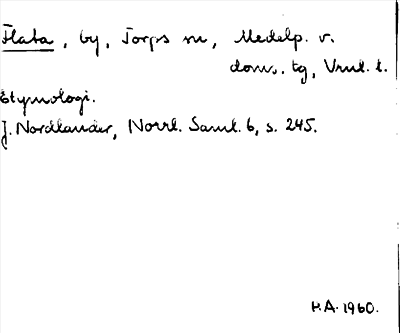 Flata, by, Torps sn, Medelp. v.
doms. tg, Vnl. l.
Etymologi.
J. Nordlander, Norrl. Saml. 6, s. 245.
H.A. 1960.